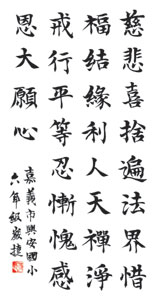 慈悲喜捨遍法界惜
福結緣利人天禪淨
戒行平等忍慚愧感
恩大願心
嘉義市興安國小
六年級嚴捷